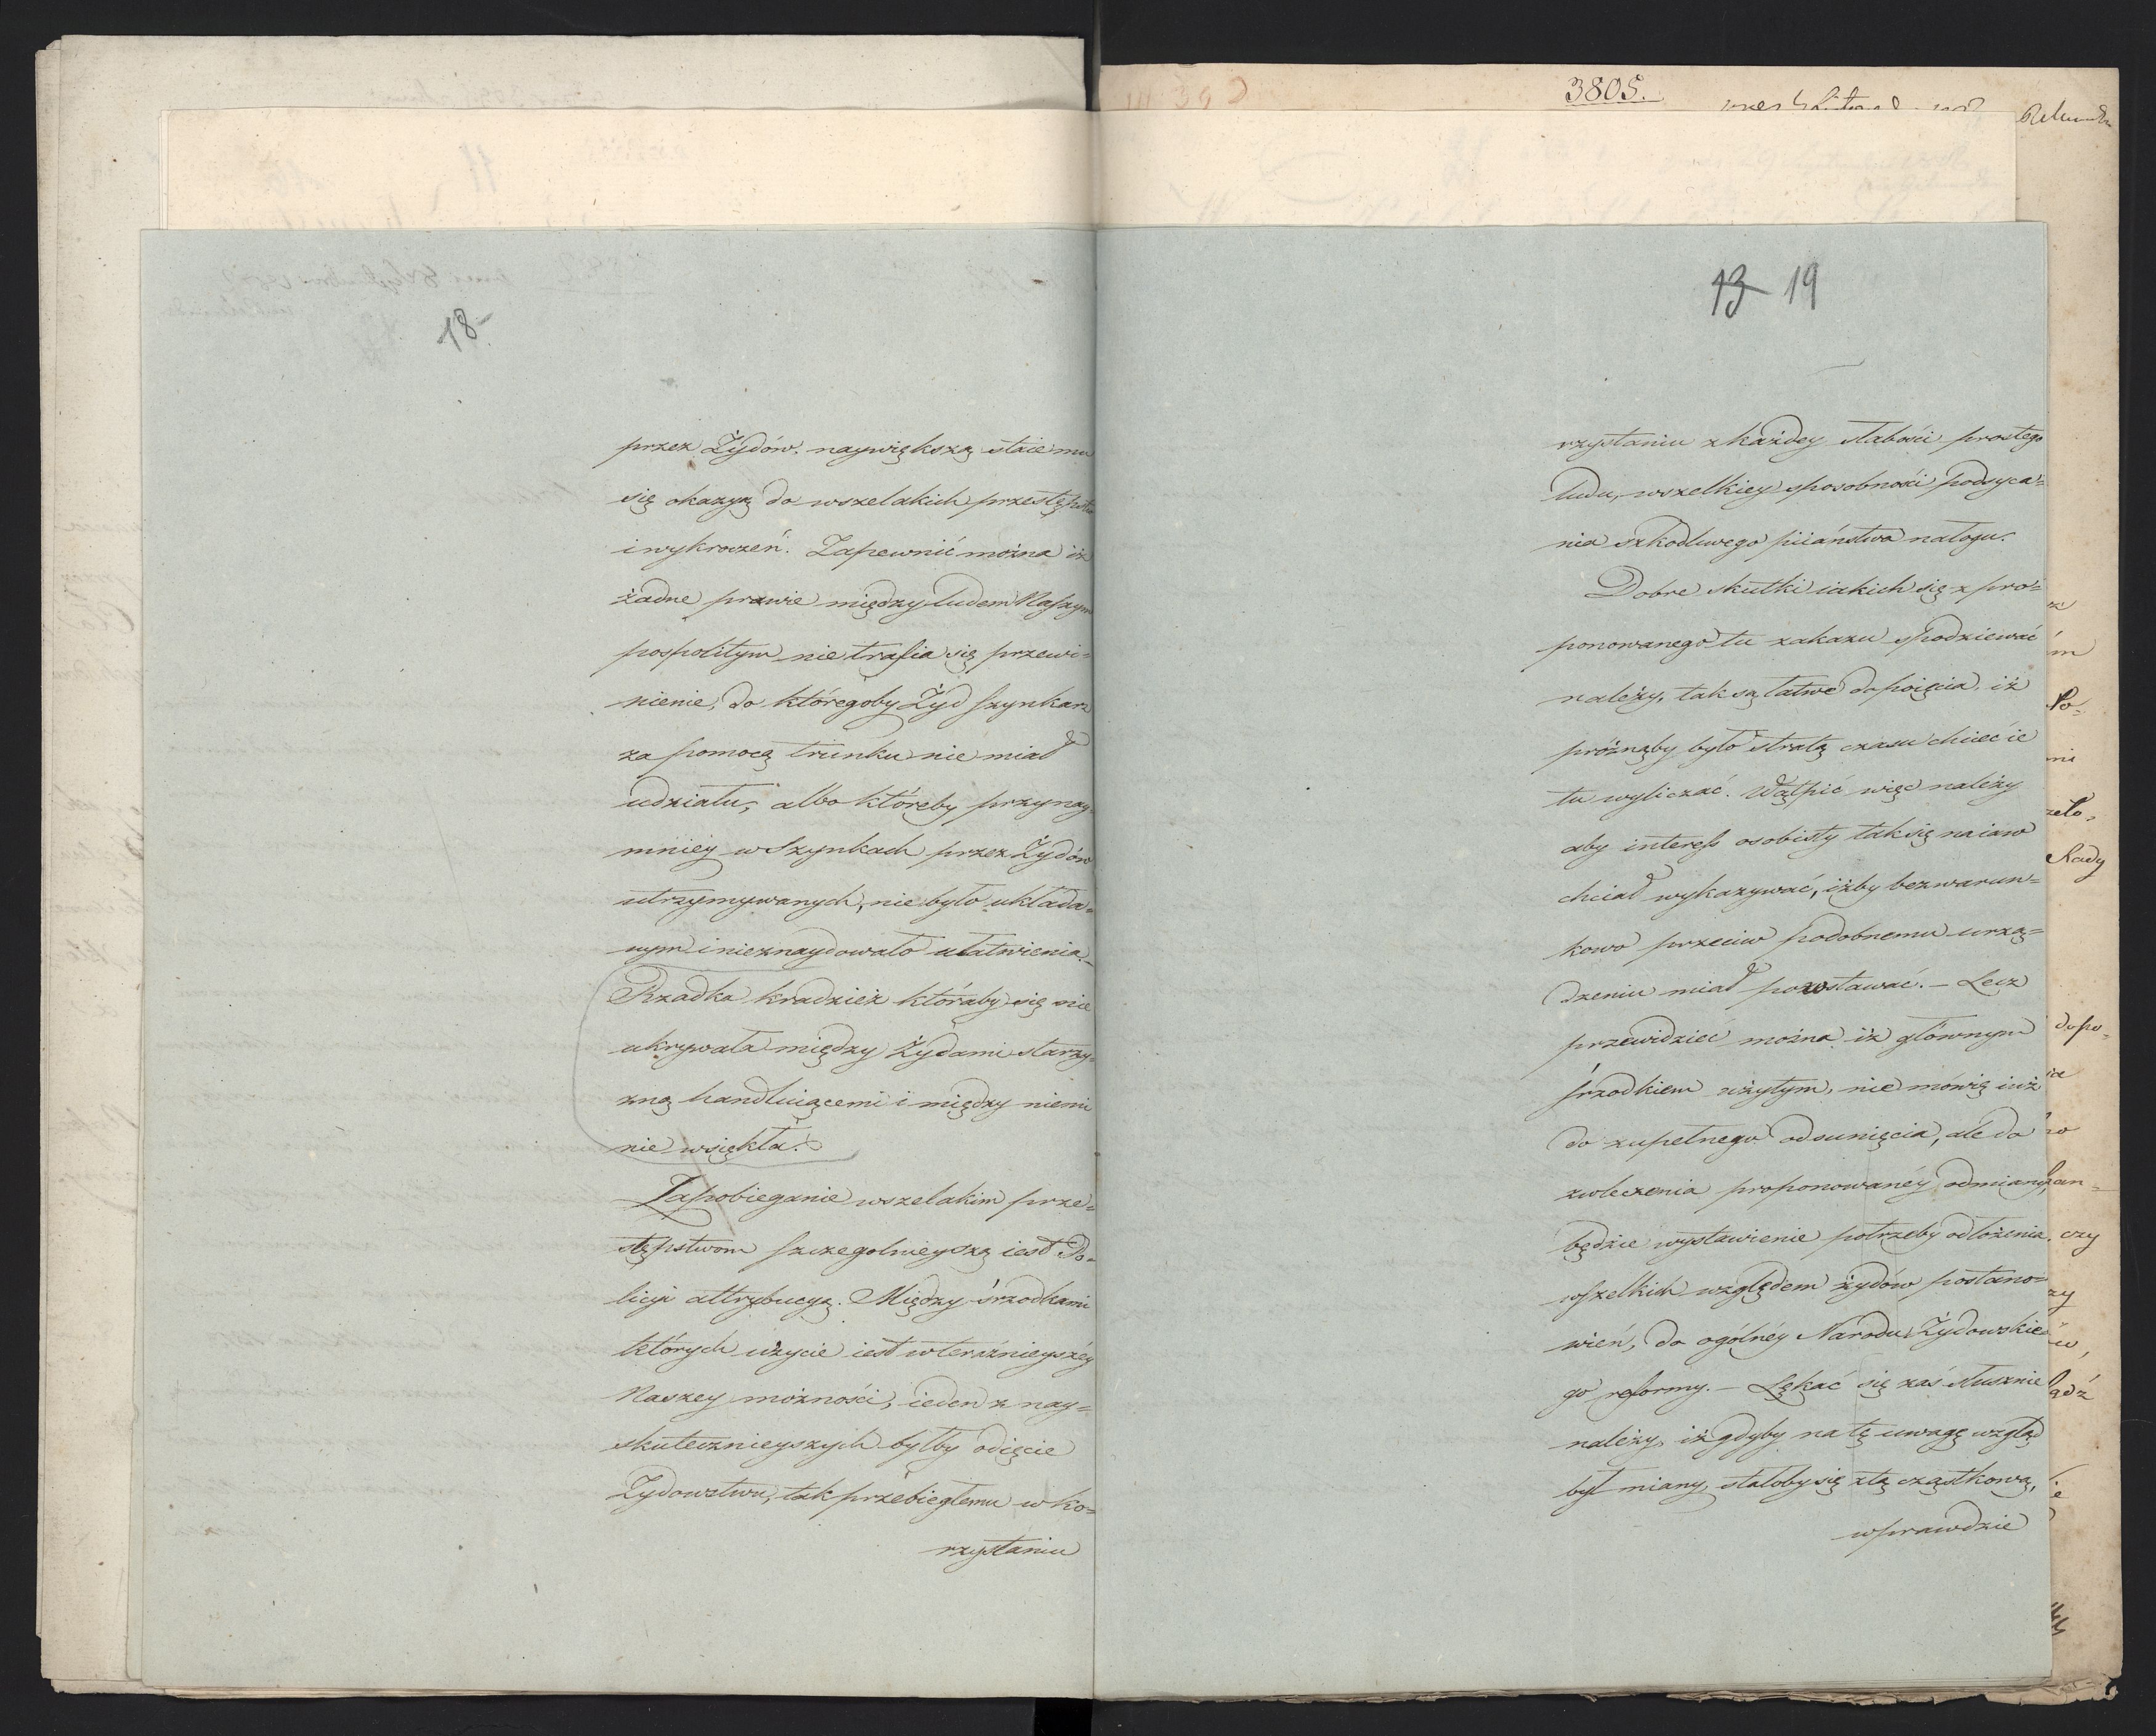 18
przez Żydów. naywiększą staie mu
się okazyą do wszelakich przestępstw
i wykroczeń. Zapewnić można iż
żadne prawie między ludem Naszym
pospolitym nie trafia się przewi=
nienie, do któregoby Żyd szynkarz
za pomocą trunku nie miał
udziału, albo któreby przynay=
mniéy w Szynkach przez Żydów
utrzymywanych, nie było układa=
nym i nieznaydowało ułatwienia.
Rzadka kradzież któraby się nie
ukrywała między Żydami starzy=
zną handluiącemi i między niemi
nie wsiękła.
Zapobieganie wszelakim prze=
stępstwom szczegolnieyszą iest Po=
licyi attrybucyą. Między śrzodkami
których użycie iest w teraźnieyszéy
Naszey możności, ieden z nay=
skutecznieyszych byłby odięcie
Żydowstwu, tak przebiegłemu w ko=
rzystaniu
3805.
13 19
rzystaniu z każdey słabości prostego
ludu, wszelkiey sposobności podsyca=
nia szkodliwego piiaństwa nałogu.
Dobre skutki iakich się z pro=
ponowanego tu zakazu spodziewać
należy, tak są łatwe do poięcia, iż
próżnąby było stratą czasu chcieć ie
tu wyliczać. Wątpić więc należy
aby interess osobisty tak się naiaw
chciał wykazywać, iżby bezwarun=
kowo przeciw podobnemu urzą=
dzeniu miał powstawać. – Lecz
przewidzieć można iż głównym
śrzodkiem użytym, nie mówię iuż
do zupełnego odsunięcia, ale do
zwleczenia proponowanéy odmiany,
będzie wystawienie potrzeby odłożenia
wszelkich względem żydów postano=
wień, do ogólnéy Narodu Żydowskie=
go reformy. – Lękać się zaś słusznie
należy, iż gdyby na tę uwagę wzgląd
był miany, stałoby się złą cząstkową,
wprawdzie